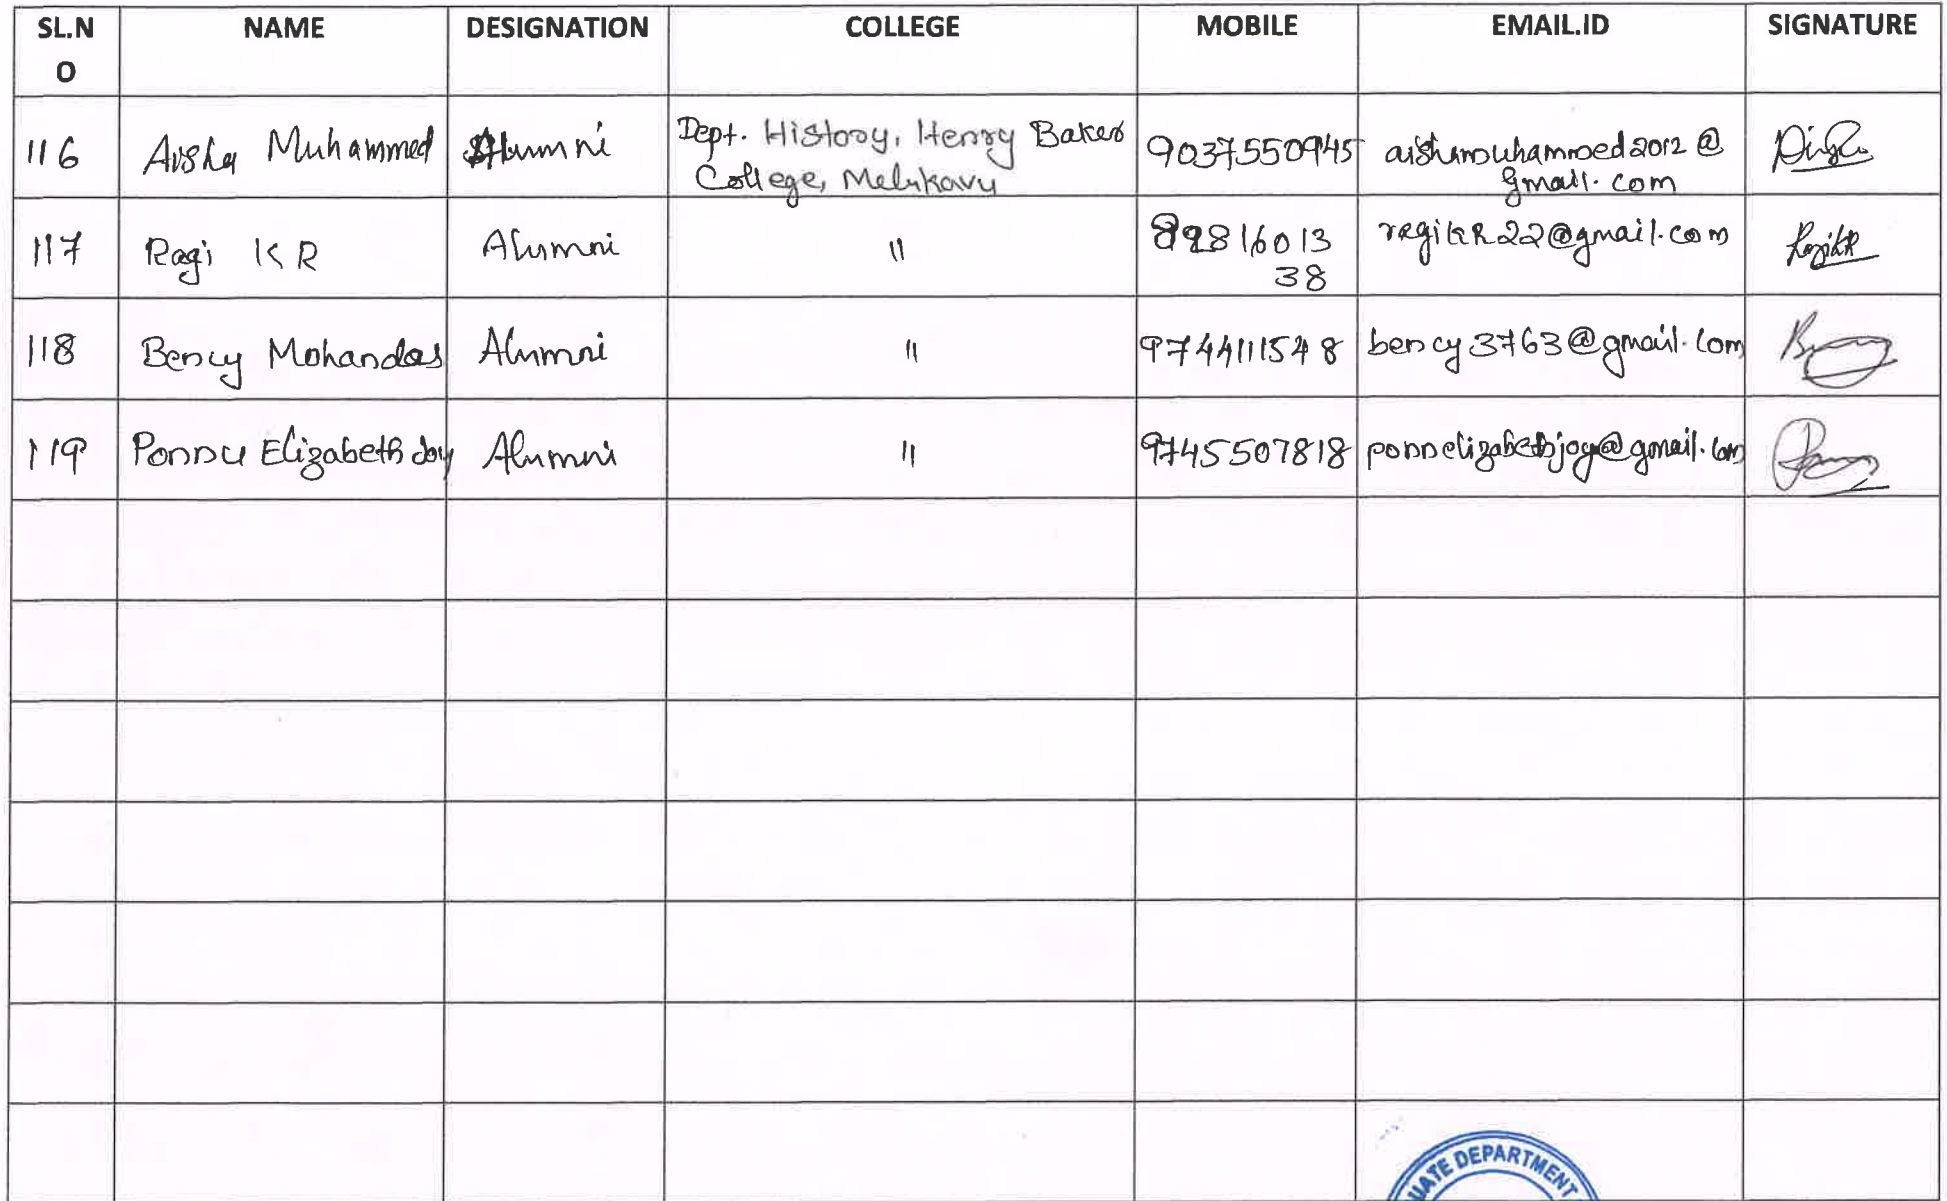 SL.N
O
NAME
DESIGNATION
COLLEGE
MOBILE
EMAIL.ID
SIGNATURE
116
Aisha Muhammed
Alumni
Dept. History, Henry Baker
College, Melukavu
9037550945
aishamuhammed2012@
gmail.com
117
Ragi K R
Alumni
"
82816013
38
ragikR22@gmail.com
RagikR
118
Bency Mohandas
Alumni
"
9744111548
bency3763@gmail.com
119
Ponnu Elizabeth Joy
Alumni
"
9745507818
ponnelizabethjoy@gmail.com
UATE DEPARTMENT